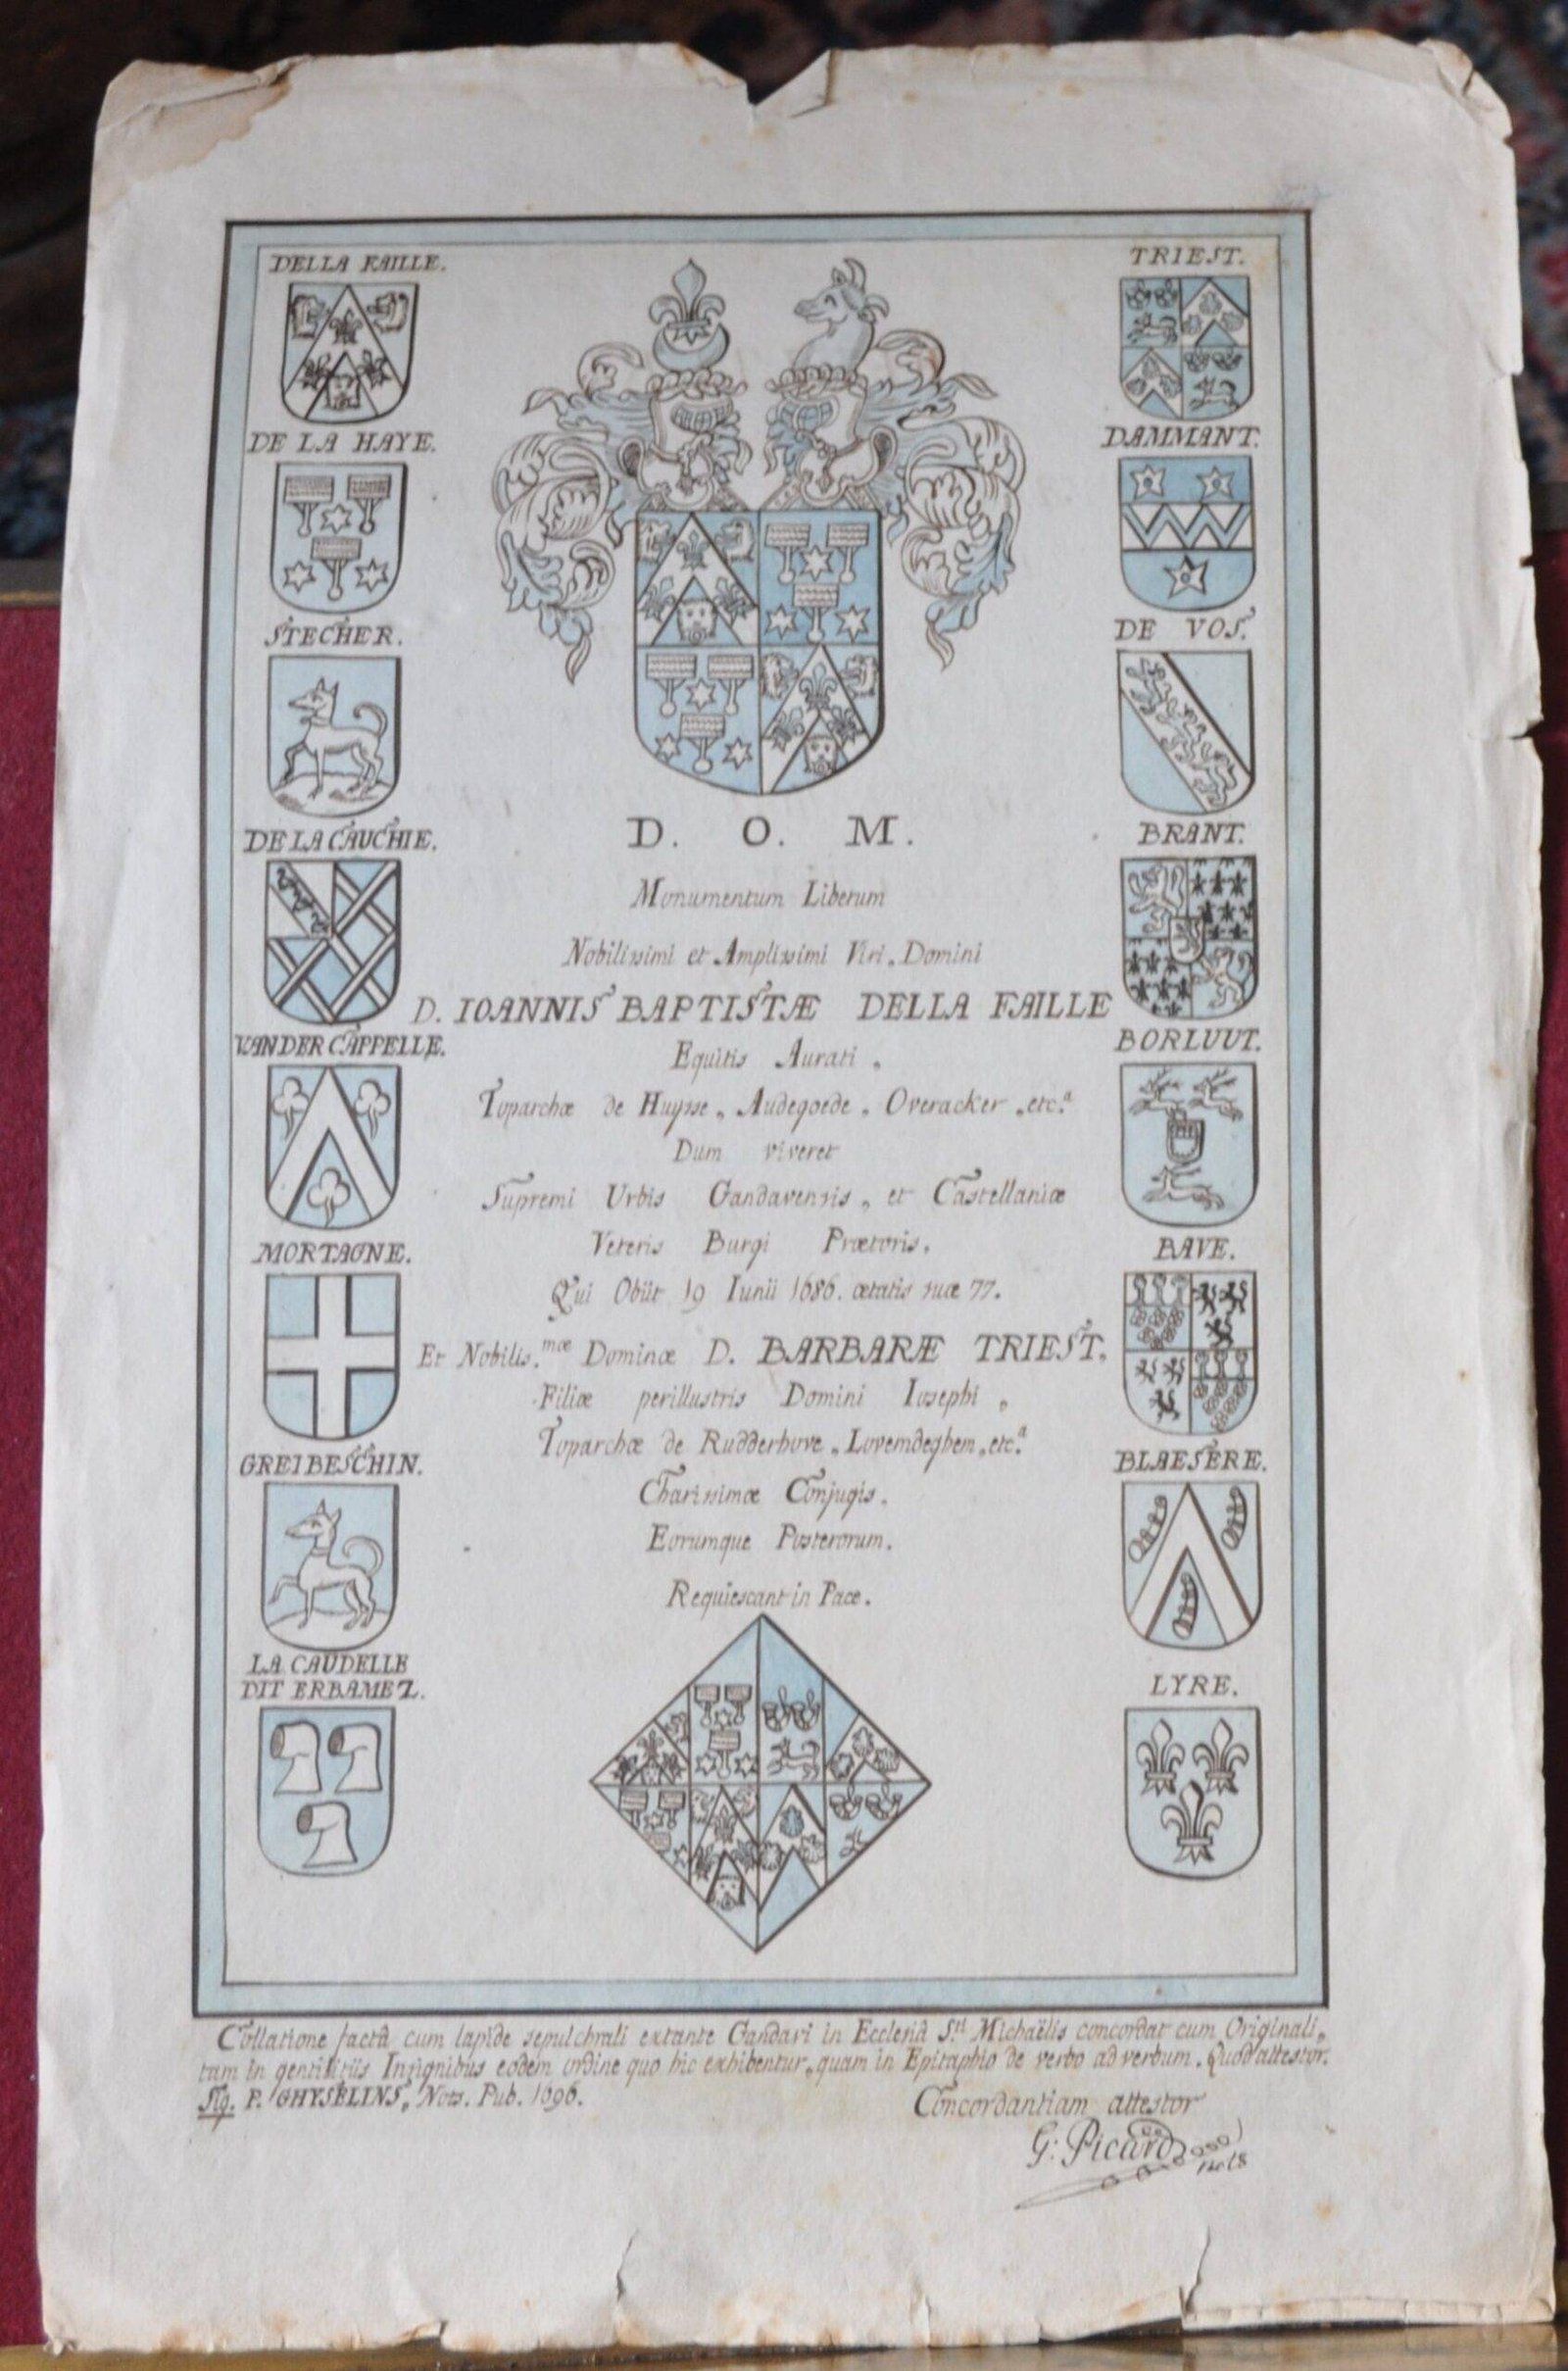 DELLA FAILLE.
DE LA HAYE.
STECHER.
DE LA CAUCHIE.
VANDER CAPPELLE.
MORTAGNE.
GREIBESCHIN.
LA CAUDELLE
DIT ERBAMEZ.
TRIEST.
DAMMANT.
DE VOS.
BRANT.
BORLUUT.
BAVE.
BLAESERE.
LYRE.
D. O. M.
Monumentum Liberum
Nobilissimi et Amplissimi Viri, Domini
D. IOANNIS BAPTISTÆ DELLA FAILLE
Equitis Aurati,
Toparchæ de Huysse, Audegoede, Overacker, etc.ª
Dum viveret
Supremi Urbis Gandavensis, et Castellaniæ
Veteris Burgi Prætoris.
Qui Obiit 19 Iunii 1686. ætatis suæ 77.
Et Nobilis.mæ Dominæ D. BARBARÆ TRIEST,
Filiæ perillustris Domini Iosephi,
Toparchæ de Rudderhove, Lovemdeghem, etc.ª
Charissimæ Conjugis.
Eorumque Posterorum.
Requiescant in Pace.
Collatione factâ cum lapide sepulchrali extante Gandavi in Ecclesiâ S.ti Michaëlis concordat cum Originali,
tam in gentilitiis Insignibus eodem ordine quo hic exhibentur, quam in Epitaphio de verbo ad verbum. Quod attestor.
Sig. P. GHYSELINS, Nots. Pub. 1696.
Concordantiam attestor
G: Picard